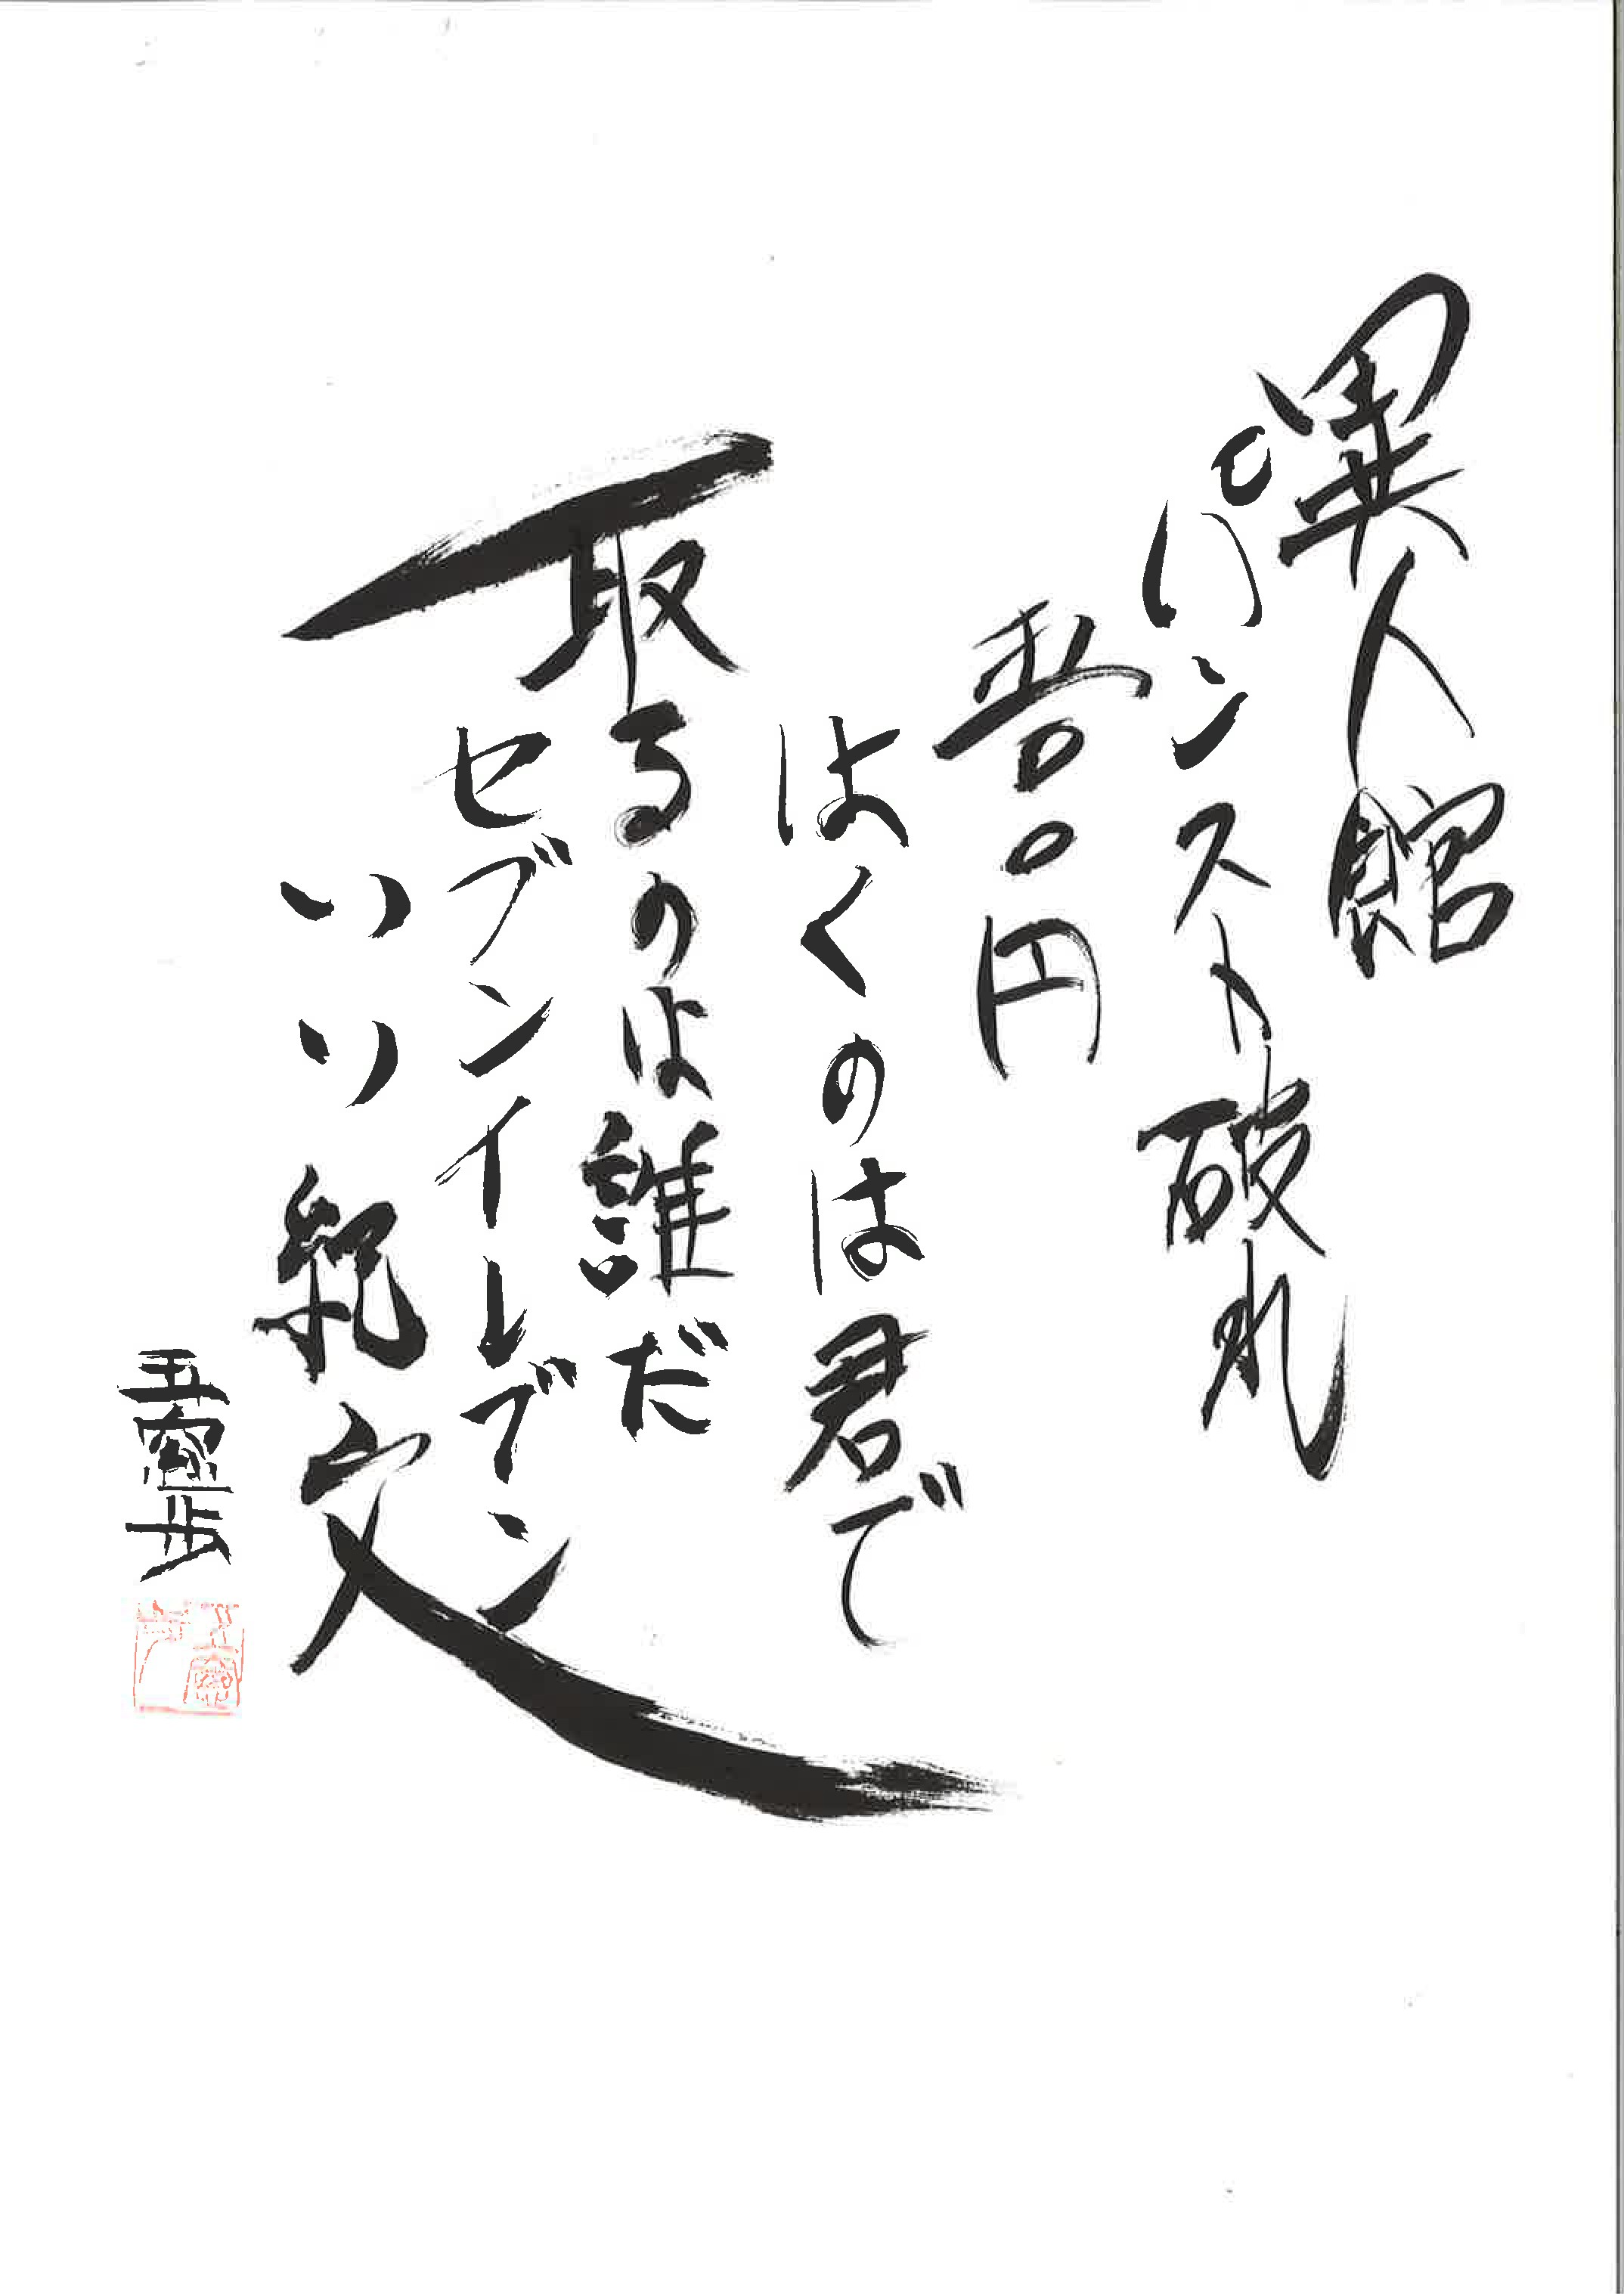 異人館
パンスト破れ
〇円
はくのは君で
取るのは誰だ
セブンイレブン
いい紀文